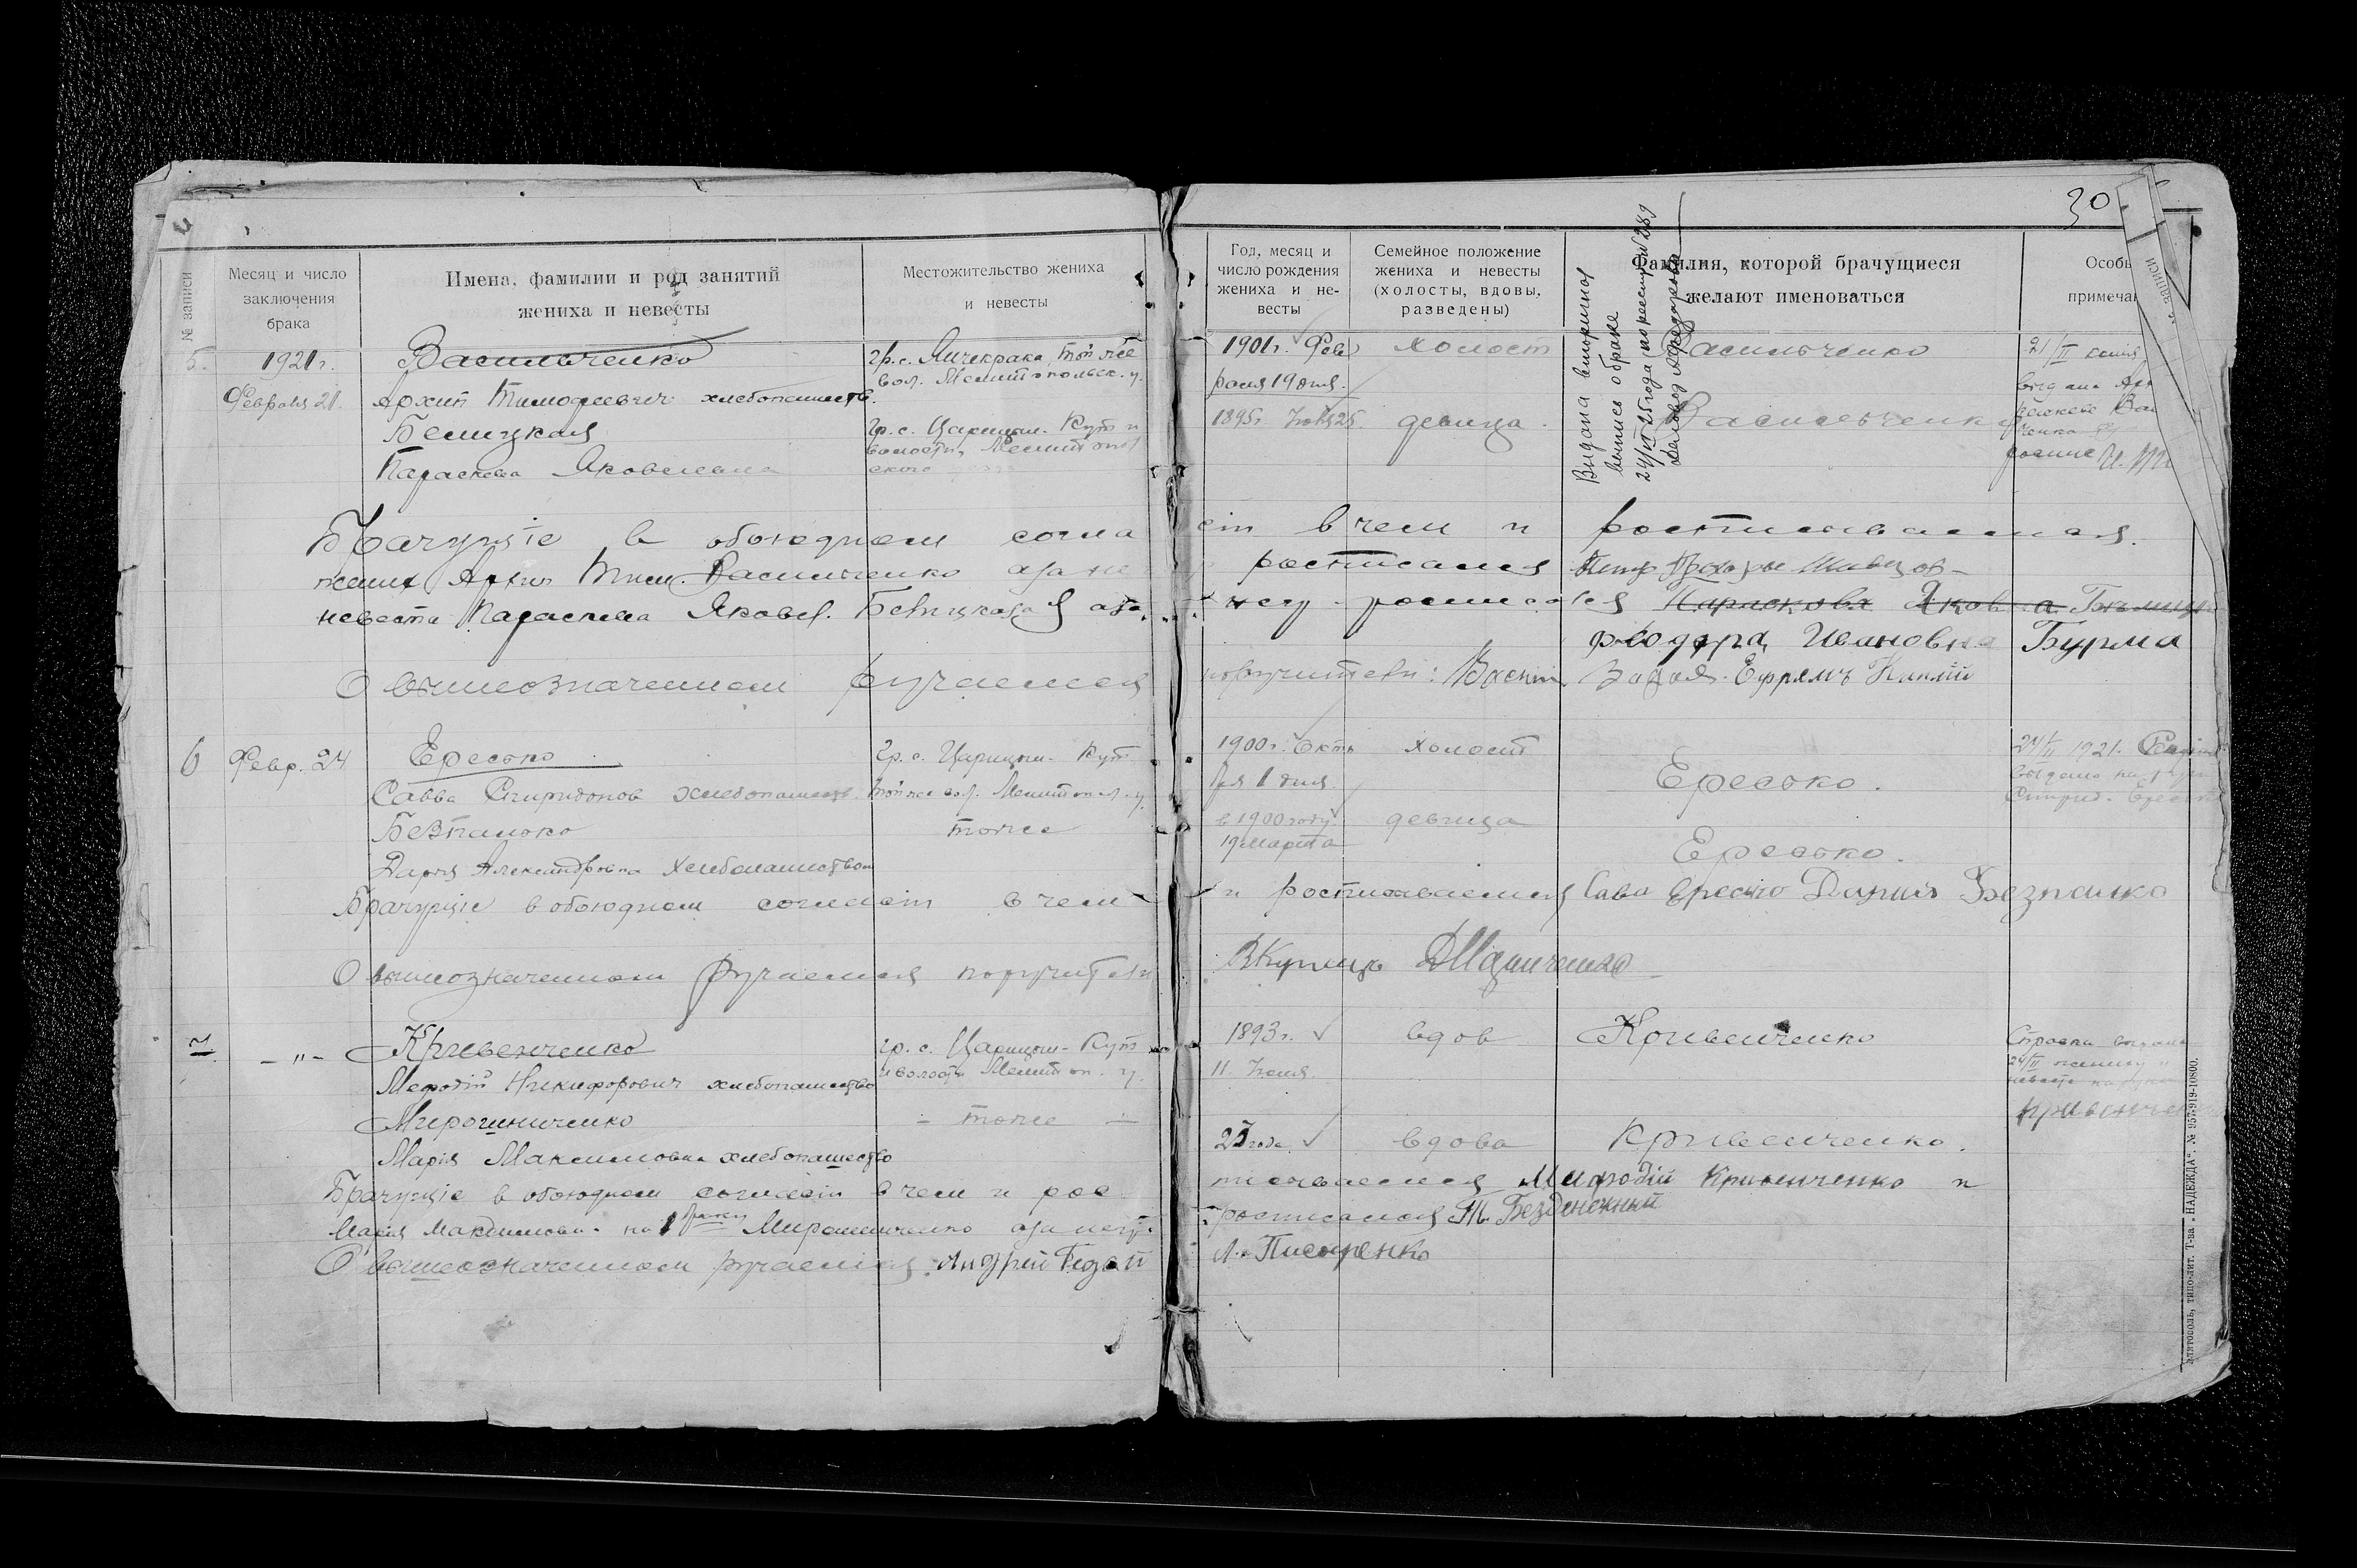 30
№ записи
Месяц и число заключения брака
Имена, фамилии и род занятий жениха и невесты
Местожительство жениха и невесты
Год, месяц и число рождения жениха и невесты
Семейное положение жениха и невесты (холосты, вдовы, разведены)
Фамилия, которой брачущиеся желают именоваться
Особы
примеча
записи
Видана вторичная
выпись о браке
24/VI 25 года по реестру № 289
5.
1921 г.
Февраля 21.
Васильченко
Архип Тимофеевич хлебопашеств.
Белицкая
Параскева Яковлевна
гр. с. Янчекрака той же
вол. Мелитопольск. у.
гр. с. Царицын. Кут и
волости, Мелитопол
ского
1901 г. Фев
раля 19 дня.
1895 г
холост
девица.
Васильченко
Васильченко
21/II
видана
Брачущіе в обоюдном согла
сіи в чем и росписываемся.
жених Архип Тим. Васильченко а за не
росписался
невеста Параскева Яковл. Белицкая а за
нег росписался Параскова Яков а
Федора Ивановна Бурма
О вышеозначенном ручаемся
поручители: Ефремъ
6
Февр. 24
Ересько
Савва Спиридонов хлебопашеств.
Безпалько
Дарья Александровна Хлебопашеством
гр. с. Царицын. Кут
той же вол. Мелитопол. у.
тоже
1900 г. Октя
бря 1 дня.
в 1900 году
19 марта
холост
девица
Ересько.
Ересько.
24/II 1921.
выдана на руки
Спирид. Ересько
Брачущіе в обоюдном согласіи в чем
и росписываемся Сава Ересько Дария Безпалько
О вышеозначенном ручаемся поручители
7.
– " –
Кривенченко
Мефодій Никифорович хлебопашество
Мирошниченко
Марія Максимовна хлебопашество
гр. с. Царицын- Кут
и волости Мелитоп. у.
– тоже –
1893 г.
11.
27 года.
вдов
вдова
Кривенченко
Кривенченко.
Справки выдана
24/II жениху и
невесте на руки
Кривенчен
Брачущіе в обоюдном согласіи в чем и рос
писываемся Мифодій Кривенченко и
Марія Максимовн. Мирошниченко а за нег
росписался Т. Безденежный
О вышеозначенном ручаемся. Андрей
Л. Писаренко
Мелитополь, типо-лит. Т-ва „НАДЕЖДА“. № 957-919-10800.